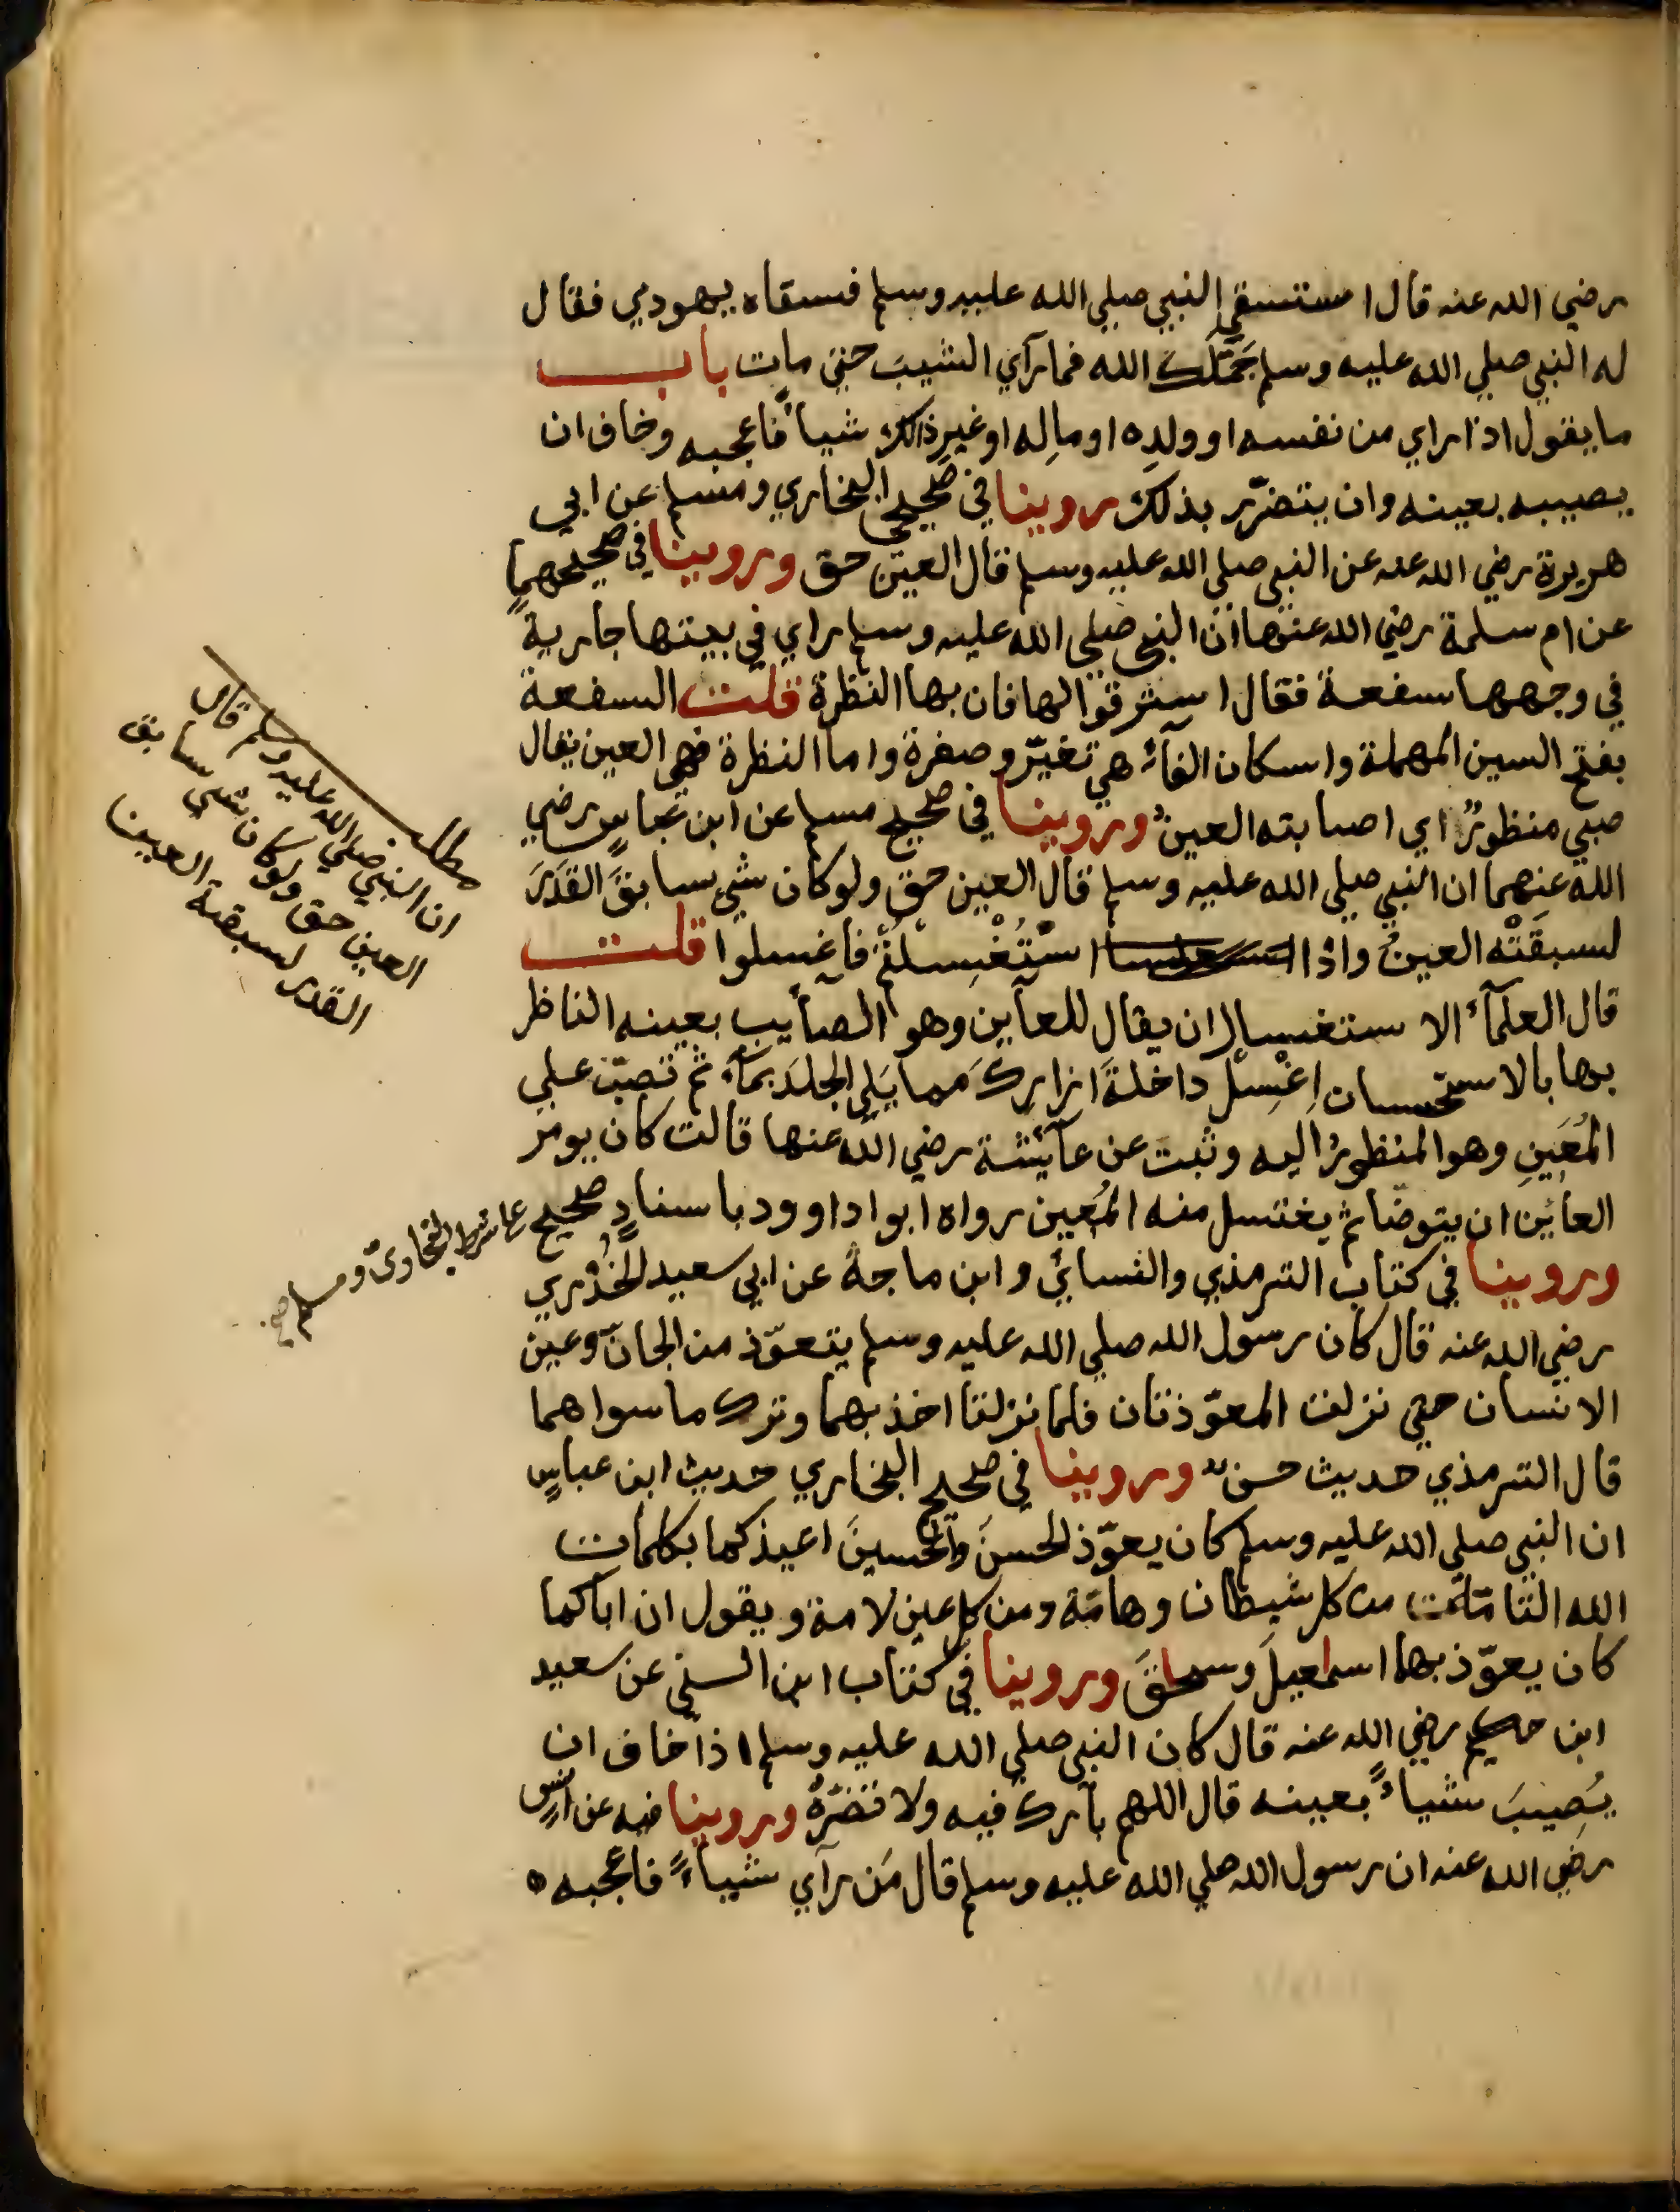 رضي الله عنه قال استسقي النبي صلي الله عليه وسلم فسقاه يهودي فقال
له النبي صلي الله عليه وسلم جَمَّلَكَ الله فما رآي الشيبَ حتي مات باب
ما يقول اذا راي من نفسه او ولدِه او مالِه او غيرِ ذالك شياً فاعجبه وخاف ان
يصيبه بعينه وان يتضرّر بذلك روينا في صحيحي البخاري ومسلم عن ابي
هريرة رضي الله عنه عن النبي صلي الله عليه وسلم قال العين حق وروينا في صحيحهما
عن ام سلمة رضي الله عنها ان النبي صلي الله عليه وسلم راي في بيتها جارية
في وجهها سفعة فقال استرقوا لها فان بها النظرة قلت السفعة
بفتح السين المهملة واسكان الفآء هي تغيّر وصفرة واما النظرة فهي العين يقال
صبي منظورٌ اي اصابته العينُ وروينا في صحيح مسلم عن ابن عباسٍ رضي
الله عنهما ان النبي صلي الله عليه وسلم قال العين حق ولو كان شي سابقَ القدَرَ
لسبقَتْه العينُ واذا استُغْسِلتُم فاغسلوا قلت
قال العلمآء الاستغسال ان يقال للعآين وهو الصآيب بعينه الناظر
بها بالاستحسان اِغْسِلْ داخلةَ ازارِكَ مما يَلِي الجلدَ بمآء ثم تصبّ علي
المُعَينِ وهو المنظورُ اليه وثبت عن عآيشة رضي الله عنها قالت كان يومر
العائين ان يتوضّا ثم يغتسل منه المُعين رواه ابوا داوود باسنادٍ صحيح علا شرط البخاوي ومسلم صح
وروينا في كتاب الترمذي والنسائي وابن ماجة عن ابي سعيد الخُدْري
رضي الله عنه قال كان رسول الله صلي الله عليه وسلم يتعوّذ من الجانّ وعين
الانسان حتي نزلت المعوّذتان فلما نزلتا اخذ بهما وترك ما سواهما
قال الترمذي حديث حسن وروينا في صحيح البخاري حديث ابن عباسٍ
ان النبي صلي الله عليه وسلم كان يعوّذ الحسنَ والحسينَ اعيذكما بكلمات
الله التامّات من كل شيطان وهامّة ومن كل عين لامة ويقول ان اباكما
كان يعوّذ بهما اسمعيلَ وسحاقَ وروينا في كتاب ابن السني عن سعيد
ابن حكيم رضي الله عنه قال كان النبي صلي الله عليه وسلم اذا خاف ان
يُصِيبَ شياءً بعينه قال اللهم بآرك فيه ولا تضرّهُ وروينا فيه عن انسٍ
رضي الله عنه ان رسول الله صلي الله عليه وسلم قال مَن رآي شياءً فاعجبه
مطلب
ان النبي صلي الله عليه وسلم قال
العين حق ولو كان شي سابق
القدر لسبقته العين